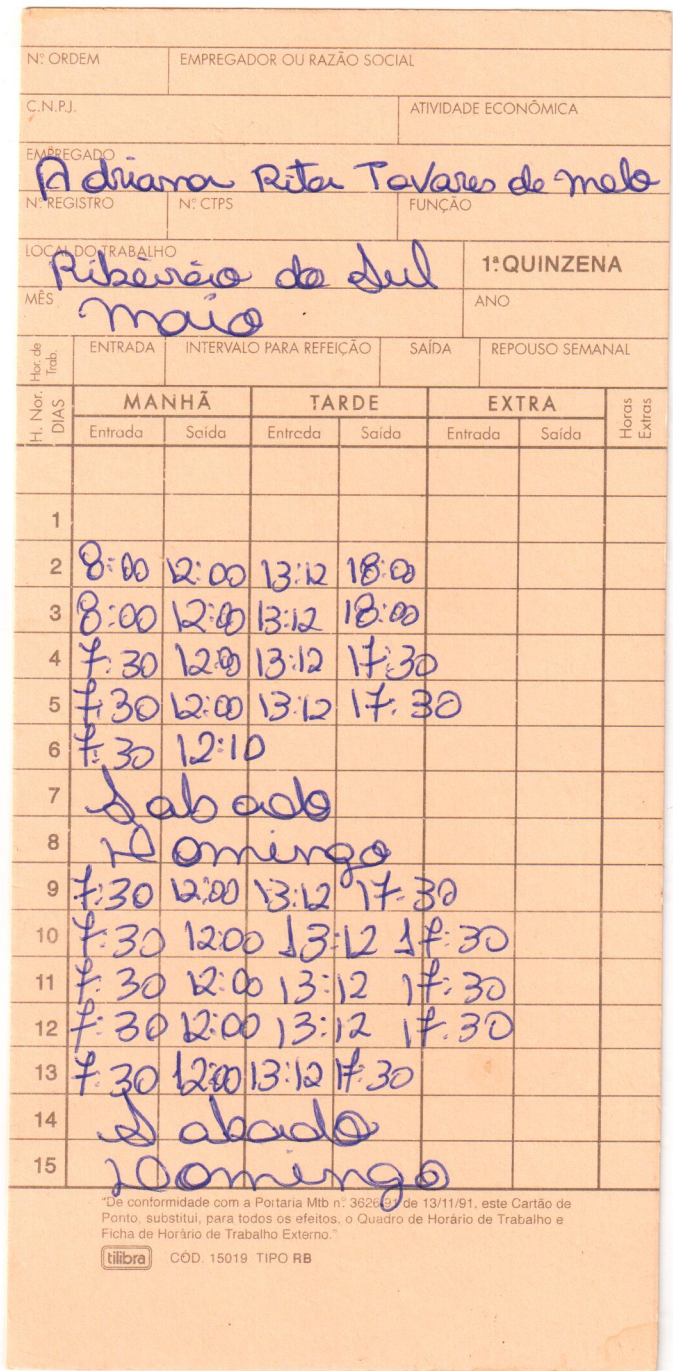 Nº ORDEM EMPREGADOR OU RAZÃO SOCIAL
C.N.P.J. ATIVIDADE ECONÔMICA
EMPREGADO
Adriana Rita Tavares de melo
Nº REGISTRO Nº CTPS FUNÇÃO
LOCAL DO TRABALHO
Ribeirão do Sul 1ª QUINZENA
MÊS ANO
maio
Hor. de Trab. ENTRADA INTERVALO PARA REFEIÇÃO SAÍDA REPOUSO SEMANAL
H. Nor. DIAS MANHÃ TARDE EXTRA Horas Extras
Entrada Saída Entrada Saída Entrada Saída
1
2 8:00 12:00 13:12 18:00
3 8:00 12:00 13:12 18:00
4 7:30 12:00 13:12 17:30
5 7:30 12:00 13:12 17:30
6 7:30 12:10
7 Sabado
8 Domingo
9 7:30 12:00 13:12 17:30
10 7:30 12:00 13:12 17:30
11 7:30 12:00 13:12 17:30
12 7:30 12:00 13:12 17:30
13 7:30 12:00 13:12 17:30
14 Sabado
15 Domingo
"De conformidade com a Portaria Mtb n. 3626-91 de 13/11/91, este Cartão de
Ponto, substitui, para todos os efeitos, o Quadro de Horário de Trabalho e
Ficha de Horário de Trabalho Externo."
tilibra CÓD. 15019 TIPO RB